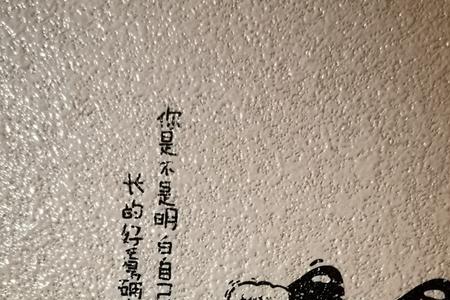 你是不是明白自己
长的好看